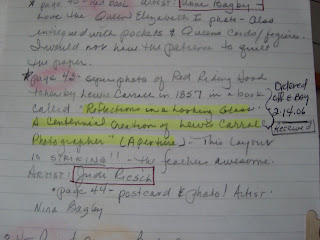 Love the Queen Elizabeth I photo - Also
intrigued with pockets & Queens Cards/
I would not have the patience to quilt
the paper.
* page 43 - Sepia photo of Red Riding Hood
taken by Lewis Carroll in 1857 in a book
called "Reflections in a Looking Glass:
A Centennial Creation of Lewis Carroll
Photographer" (Aperture) - This layout
is STRIKING!! - the feather awesome.
ARTIST: Judi Riesch
• page 44 - postcard & photo! Artist:
Nina Bagley
Ordered
off E-Bay
2-14-06
Received